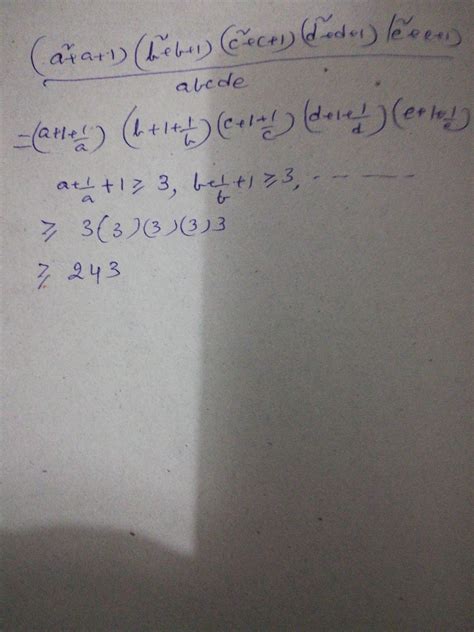 (a²+a+1)(b²+b+1)(c²+c+1)(d²+d+1)(e²+e+1)
abcde
=(a+1+1/a)(b+1+1/b)(c+1+1/c)(d+1+1/d)(e+1+1/e)
a+1/a+1≥3, b+1/b+1≥3, - - - - -
≥ 3(3)(3)(3)3
≥ 243